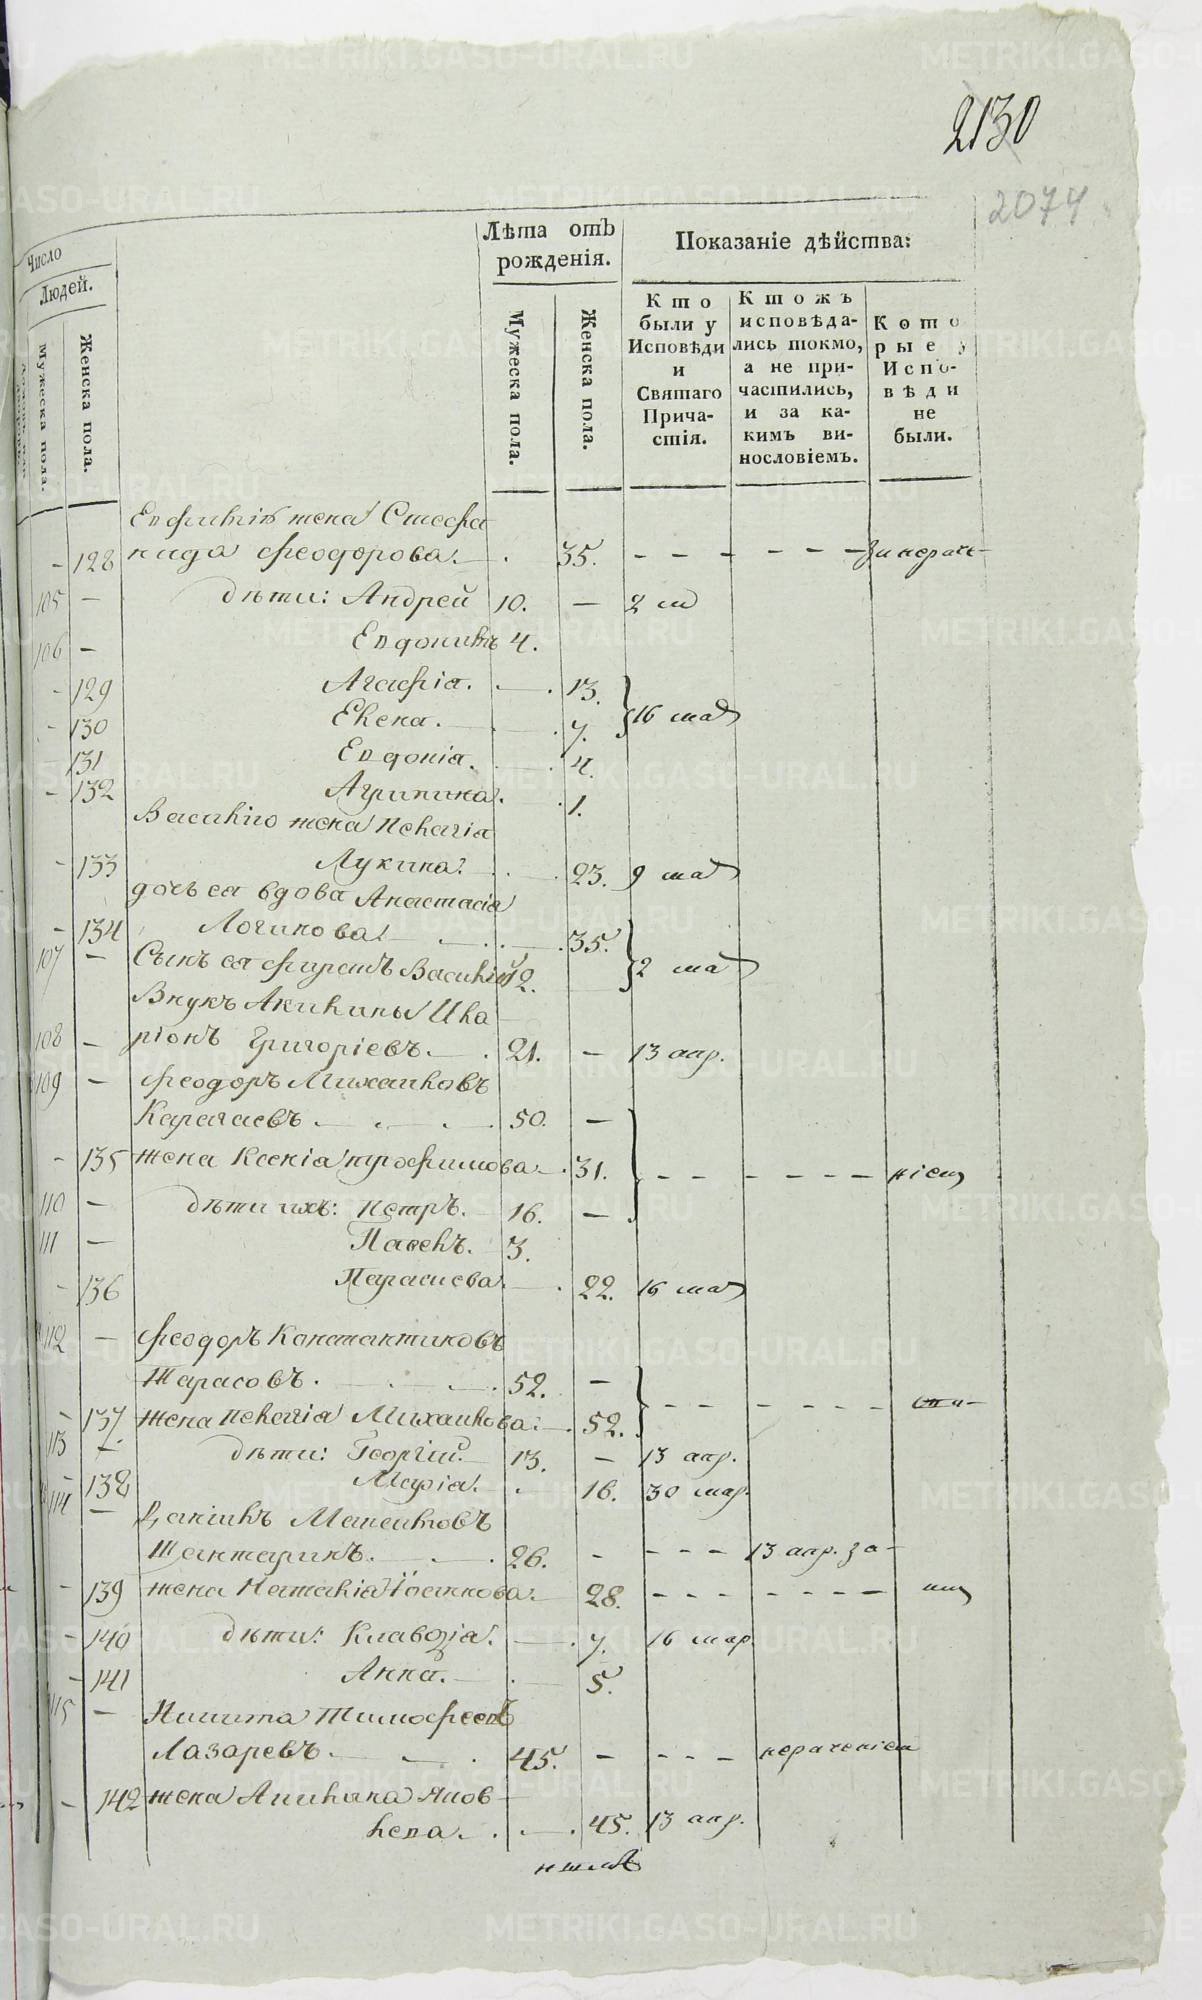 2130
2074
Число
Людей.
Мужеска пола.
Женска пола.
Лѣта отъ
рожденія.
Мужеска пола.
Женска пола.
Показаніе дѣйства:
Кто
были у
Исповѣди
и
Святаго
Прича-
стія.
Ктожъ
исповѣда-
лись токмо,
а не при-
частились,
и за ка-
кимъ ви-
нословіемъ.
Кото
рые у
Испо-
вѣди
не
были.
Евфимія жена Стефа
- 128 нида Феодорова. 35. - - - - - -
105 - дѣти: Андрей 10. - 2
106 - Евдокимъ 4.
- 129 Агафія. 13.
- 130 Елена. 7. 16 мая
131 Евдокія. 4.
- 132 Агрипина. 1.
Василію жена Пелагія
- 133 Лукина. 23. 9 мая
дочь ея вдова Анастасія
- 134 Логинова. 35.
107 - Сынъ ея Василій 12. 2 мая
Внукъ Акилины Ила
108 - ріонъ Григоріевъ. 21. - 13 апр.
109 - Феодоръ Михаиловъ
Карагаевъ 50. -
- 135 жена Ксенія Трофимова. 31. - - - - - - -
110 - дѣти ихъ: Петръ. 16. -
111 - Павелъ. 3.
- 136 Парасковья. 22. 16 мая
112 - Феодоръ Константиновъ
Тарасовъ. 52. -
- 137 жена Пелагія Михаилова. 52. - - - - - -
113 - дѣти: Георгій. 13. - 13 апр.
- 138 Марія. 16. 30 мар.
114 - Даніилъ Максимовъ
Шантаринъ. 26. - - - - 13 апр. за-
- 139 жена Наталія 28. - - - - - - -
- 140 дѣти: Клавдія. 7. 16 мар.
- 141 Анна. 5.
115 - Никита Тимофеевъ
Лазаревъ 45. - - - - нераченіем
- 142 жена Акилина Яков-
лева. 45. 13 апр.